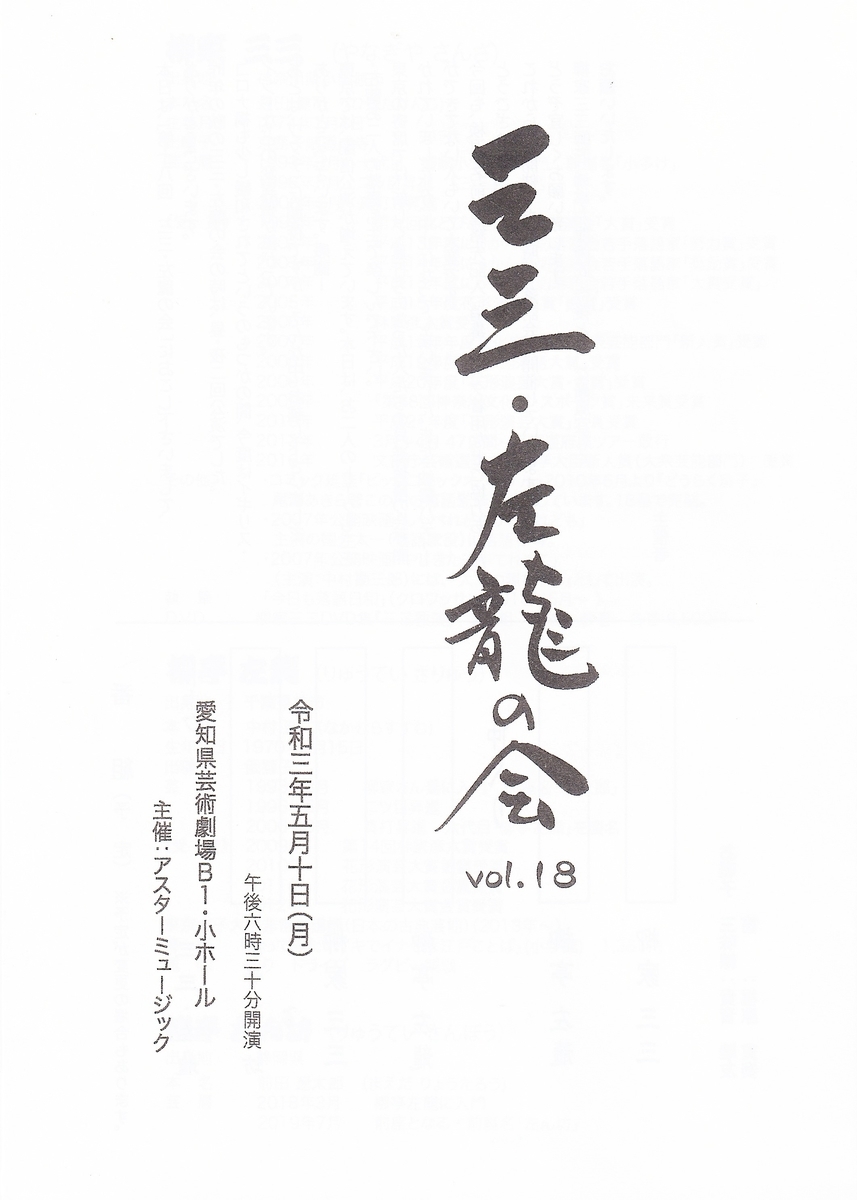 三三・左龍の会
vol.18
令和三年五月十日(月)
午後六時三十分開演
愛知県芸術劇場B1・小ホール
主催:アスターミュージック